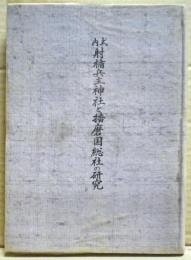 式内射楯兵主神社と播磨国総社の研究